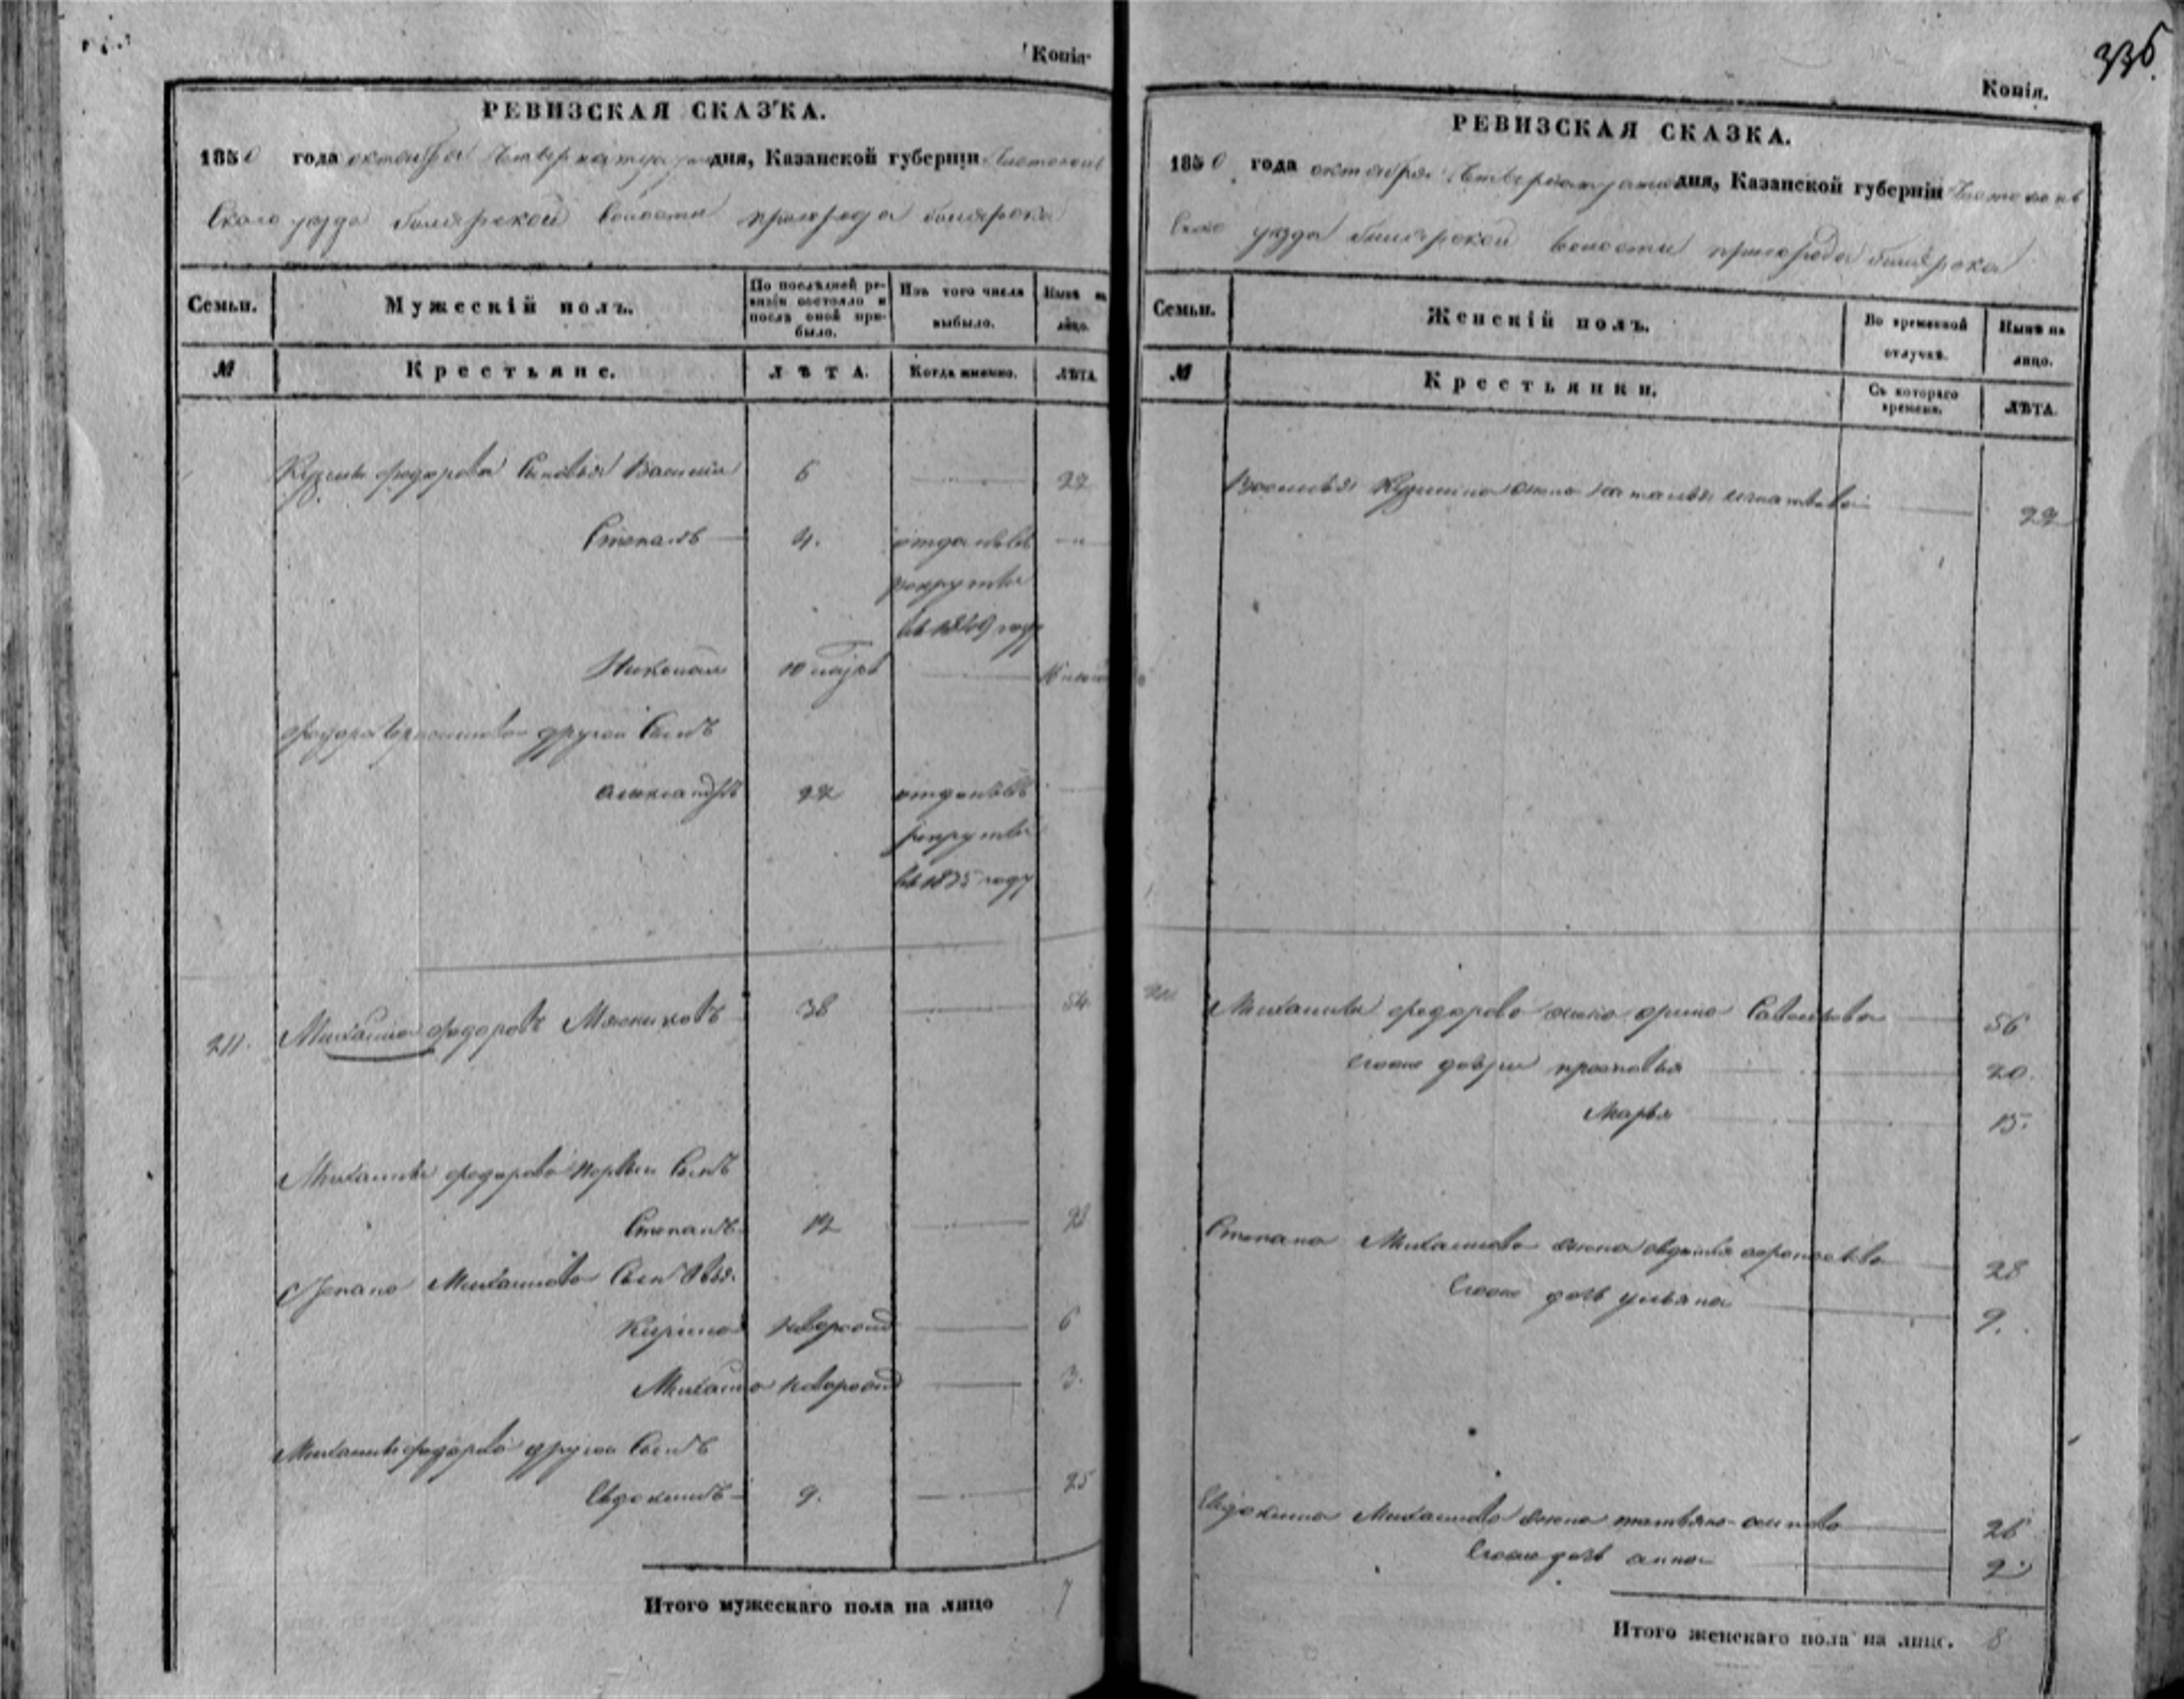 Копія
РЕВИЗСКАЯ СКАЗКА.
1850 года октября дня, Казанской губерніи Чистополь
скаго уезда билярской волости пригорода билярска
Семьи. Мужескій полъ. По послѣдней ревизіи состояло и послѣ оной прибыло. Изъ того числа выбыло. Нынѣ на лицо.
№ Крестьяне. ЛѢТА. Когда именно. ЛѢТА
Кузмы федорова сыновья Василий 6 22
Степанъ 4. отданъ въ
рекруты
въ 1849 году
Николай 10
федора другой сынъ
александръ 22 отданъ въ
рекруты
въ 1835 году
211. Михаило федоровъ 38 54
Михаила федорова первый сынъ
Степанъ 12 28
Степана Михайлова сыновья
Кирило новорожд 6
Михайло новорожд 3.
Михаила федорова другой сынъ
Евдокимъ 9. 25
Итого мужескаго пола на лицо 7
335.
Копія.
РЕВИЗСКАЯ СКАЗКА.
1850 года октября дня, Казанской губерніи Чистополь
скаго уезда билярской волости пригорода билярска
Семьи. Женскій полъ. Во временной отлучкѣ. Нынѣ на лицо.
№ Крестьянки. Съ котораго времени. ЛѢТА.
Василья Кузмина жена наталья игнатьева 22
211 Михаила федорова жена арина Савельева 56
Егоже дочри прасковья 20.
Марья 15.
Степана Михайлова жена авдотья 28
Егоже дочь ульяна 9.
Евдокима Михайлова жена татьяна осипова 26
Егоже дочь анна 2
Итого женскаго пола на лице. 8